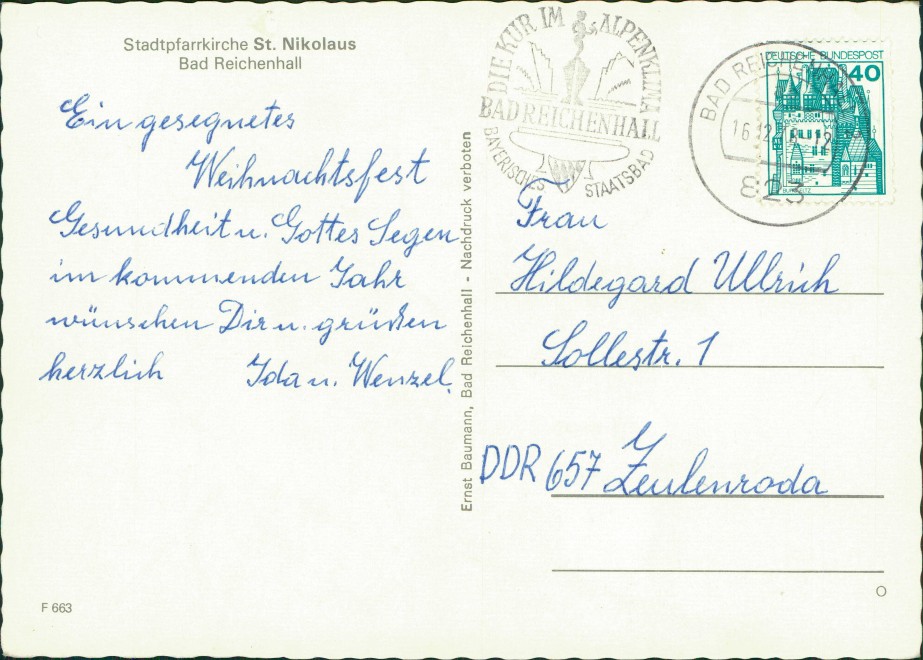 Stadtpfarrkirche St. Nikolaus
Bad Reichenhall
Ein gesegnetes
Weihnachtsfest
Gesundheit u. Gottes Segen
im kommenden Jahr
wünschen Dir u. grüßen
herzlich Ida u. Wenzel.
F 663
Ernst Baumann, Bad Reichenhall - Nachdruck verboten
DIE KUR IM ALPENKLIMA
BAD REICHENHALL
BAYERISCHES STAATSBAD
BAD REICHENHALL
823
DEUTSCHE BUNDESPOST
40
Frau
Hildegard Ullrich
Sollestr. 1
DDR 657 Zeulenroda